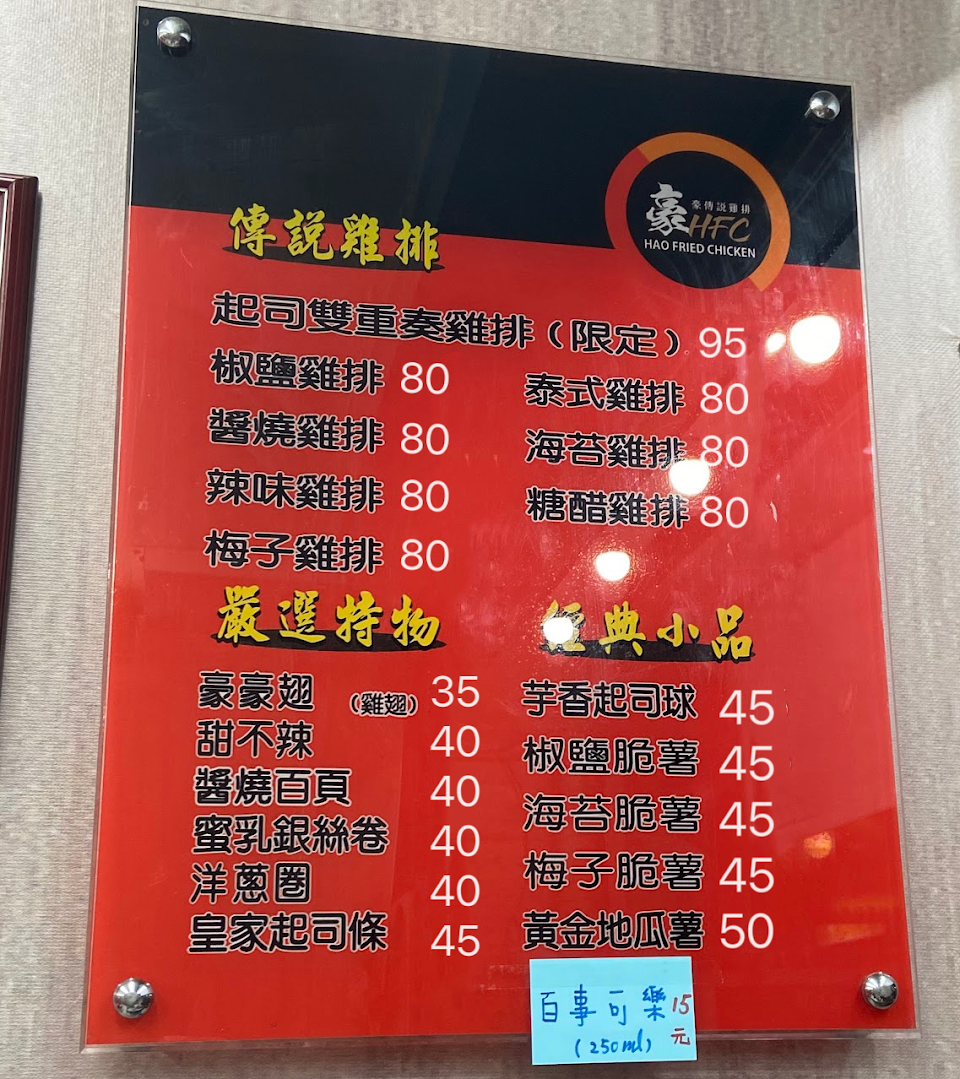 豪
豪傳説雞排
HFC
HAO FRIED CHICKEN
傳説雞排
起司雙重奏雞排(限定) 95
椒鹽雞排 80
醬燒雞排 80
辣味雞排 80
梅子雞排 80
泰式雞排 80
海苔雞排 80
糖醋雞排 80
嚴選特物
豪豪翅 (雞翅) 35
甜不辣 40
醬燒百頁 40
蜜乳銀絲卷 40
洋蔥圈 40
皇家起司條 45
經典小品
芋香起司球 45
椒鹽脆薯 45
海苔脆薯 45
梅子脆薯 45
黃金地瓜薯 50
百事可樂 15元
(250ml)